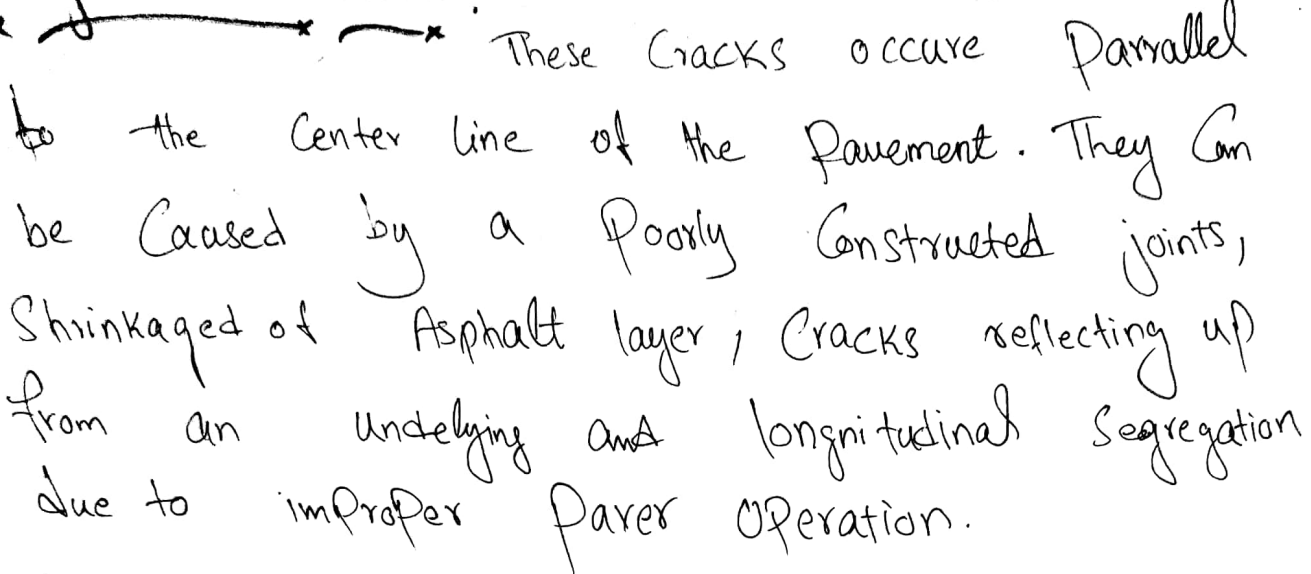 These Cracks occure Parrallel
to the Center line of the Pavement. They Can
be Caused by a Poorly Constructed joints,
Shrinkaged of Asphalt layer, Cracks reflecting up
from an undelying and longnitudinal Segregation
due to improper Paver Operation.